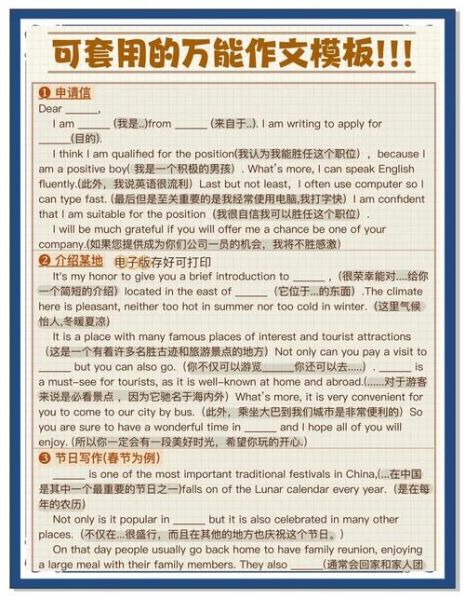 可套用的万能作文模板!!!
❶ 申请信
Dear _____,
I am _____ (我是..)from _____ (来自于..). I am writing to apply for
_____(目的).
I think I am qualified for the position(我认为我能胜任这个职位) ，because I
am a positive boy( 我是一个积极的男孩) . What's more, I can speak English
fluently.(此外，我说英语很流利）Last but not least，I often use computer so I
can type fast. (最后但是至关重要的是我经常使用电脑,我打字快）I am confident
that I am suitable for the position（我很自信我可以胜任这个职位）.
I will be much grateful if you will offer me a chance be one of your
company.(如果您提供成为你们公司一员的机会，我将不胜感激)
❷ 介绍某地 电子版存好可打印
It's my honor to give you a brief introduction to _____ ，（很荣幸能对....给你
一个简短的介绍）located in the east of _____（它位于...的东面）.The climate
here is pleasant, neither too hot in summer nor too cold in winter.（这里气候
怡人,冬暖夏凉）
It is a place with many famous places of interest and tourist attractions
（这是一个有着许多名胜古迹和旅游景点的地方）Not only can you pay a visit to
_____ but you can also go.（你不仅可以游览_____你还可以去.....）. _____ is
a must-see for tourists, as it is well-known at home and abroad.(......对于游客
来说是必看景点 ，因为它驰名于海内外）What's more, it is very convenient for
you to come to our city by bus.（此外，乘坐大巴到我们城市是非常便利的）So
you are sure to have a wonderful time in _____ and I hope all of you will
enjoy. (所以你一定会有一段美好时光，希望你玩的开心.)
❸ 节日写作(春节为例）
_____ is one of the most important traditional festivals in China,(...在中国
是其中一个最重要的节日之一)falls on of the Lunar calendar every year.（是在每
年的农历）
Not only is it popular in _____ but it is also celebrated in many other
places.（不仅在...很盛行，而且在其他的地方也庆祝这个节日。）
On that day people usually go back home to have family reunion, enjoying
a large meal with their family members. They also _____(通常会回家和家人团